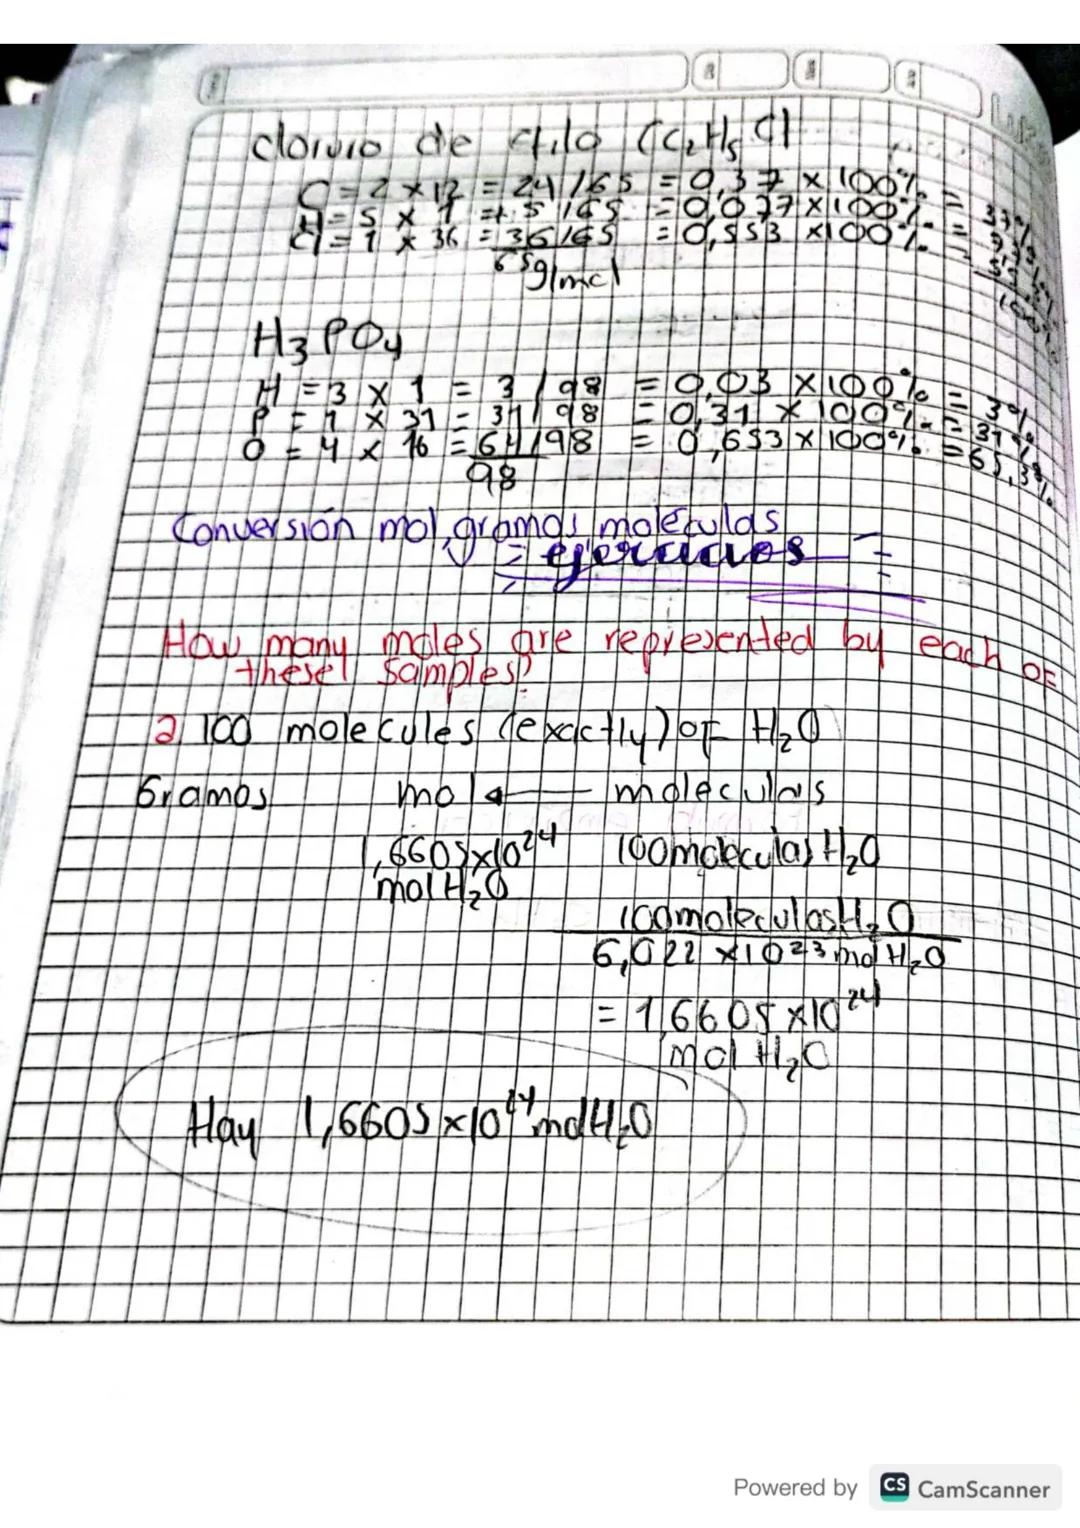 cloruro de etilo (C₂H₅Cl
C = 2 x 12 = 24/65 = 0,37 x 100% = 37%
H = 5 x 1 = 5/65 = 0,077 x 100% =
Cl = 1 x 36 = 36/65 = 0,553 x 100% =
65g/mol
100%
H₃PO₄
H = 3 x 1 = 3/98 = 0,03 x 100% = 3%
P = 1 x 31 = 31/98 = 0,31 x 100% = 31%
O = 4 x 16 = 64/98 = 0,653 x 100% = 65,3%
98
Conversión mol, gramos, moléculas
= ejercicios =
How many moles are represented by each of
these samples?
a, 100 molecules (exactly) of H₂O
Gramos mol ← moleculas
1,6605x10²⁴ 100moleculas H₂O
mol H₂O
100moleculas H₂O
6,022 x10²³ mol H₂O
= 1,6605 x10²⁴
mol H₂O
Hay 1,6605x10²⁴ mol H₂O
Powered by CS CamScanner